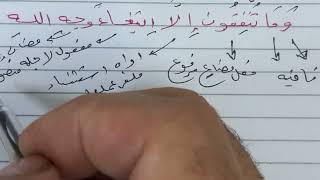 وَمَا تُنْفِقُونَ إِلَّا ابْتِغَاءَ وَجْهِ اللهِ
نافيه فعل مضارع مرفوع أداة استثناء مفعول لاجله
ملغى عملها